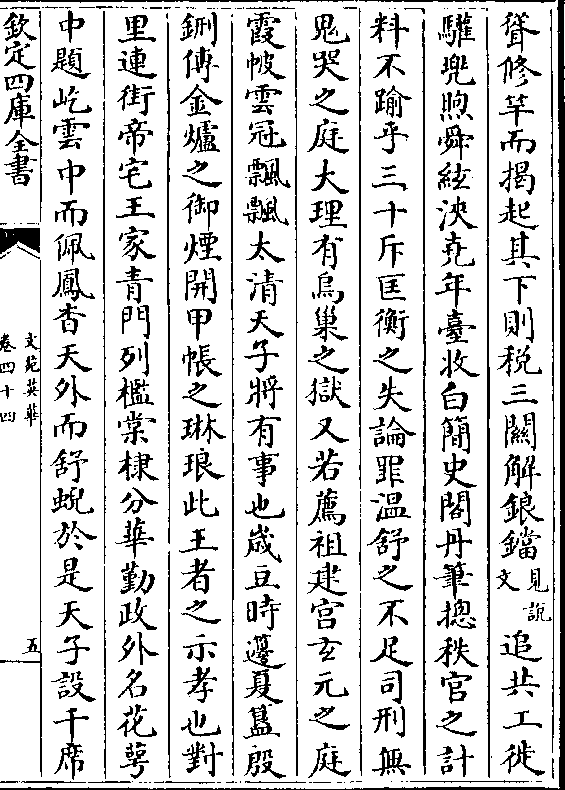 聳修竿而揭起其下則稅三闗解鋃鐺見說文追共工徙
驩兜煦舜絃泱堯年臺收白簡史閣丹筆摠秩官之計
料不踰乎三十斥匡衡之失論罪温舒之不足司刑無
鬼哭之庭大理有烏巢之獄又若薦祖建宫玄元之庭
霞帔雲冠飄飄太清天子將有事也歳豆時籩夏簋殷
鉶傳金爐之御煙開甲帳之琳琅此王者之示孝也對
里連街帝宅王家青門列檻棠棣分華勤政外名花萼
中題屹雲中而佩鳳杳天外而舒蜺於是天子設千席
欽定四庫全書
文苑英華
卷四十四
五